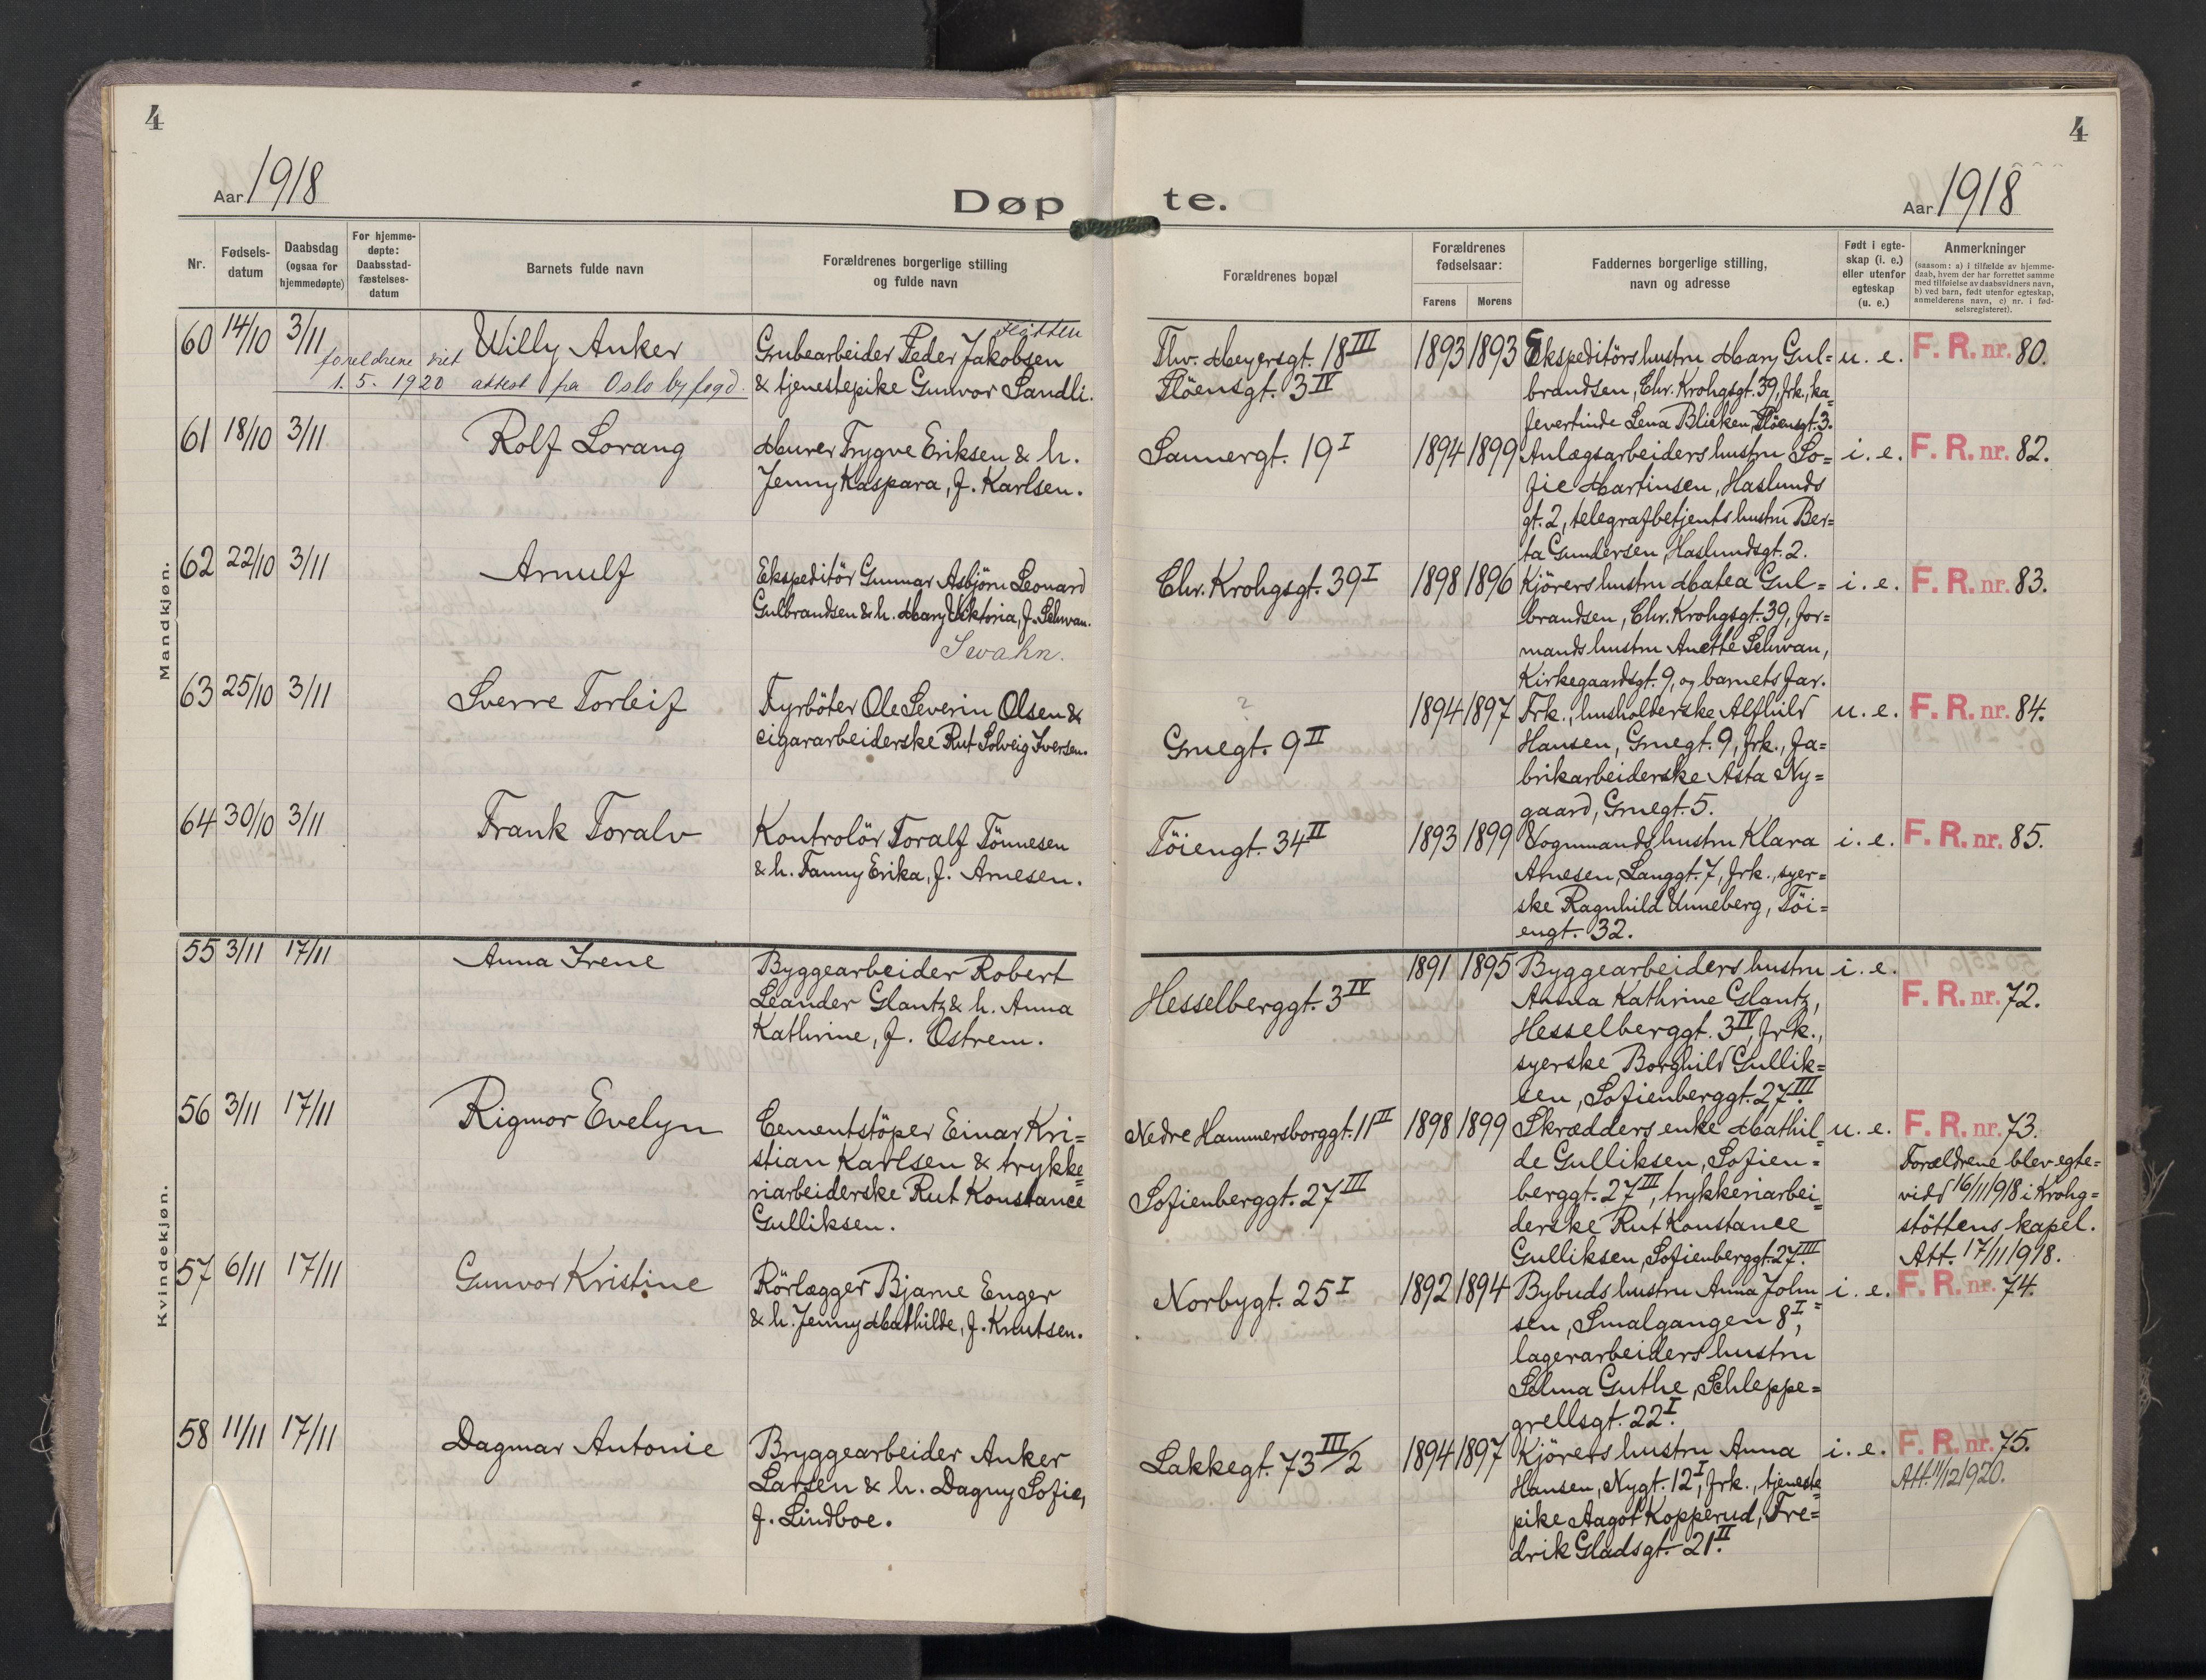 4
4
Aar 1918
Døpte.
Aar 1918
Nr.
Fødsels-
datum
Daabsdag
(ogsaa for
hjemmedøpte)
For hjemme-
døpte:
Daabsstad-
fæstelses-
datum
Barnets fulde navn
Forældrenes borgerlige stilling
og fulde navn
Forældrenes bopæl
Forældrenes
fødselsaar:
Farens
Morens
Faddernes borgerlige stilling,
navn og adresse
Født i egte-
skap (i. e.)
eller utenfor
egteskap
(u. e.)
Anmerkninger
(saasom: a) i tilfælde av hjemme-
daab, hvem der har forrettet samme
med tilføielse av daabsvidners navn,
b) ved barn, født utenfor egteskap,
anmelderens navn, c) nr. i fød-
selsregisteret).
Mandkjøn.
60 14/10 3/11
Willy Anker
foreldrene viet
1. 5. 1920 attest fra Oslo byfogd.
Grubearbeider Peder Jakobsen
& tjenestepike Gunvor Sandli.
Thv. Meyersgt. 18 III
Plöensgt. 3 IV
1893 1893
Ekspeditörs hustru Mary Gul=
brandsen, Chr. Krohgsgt. 39, frk., ka=
fevertinde Lena Blieken, Plöensgt. 3.
u. e.
F. R. nr. 80.
61 18/10 3/11
Rolf Lorang
Murer Trygve Eriksen & h.
Jenny Kaspara, f. Karlsen.
Sannergt. 19 I
1894 1899
Anlægsarbeiders hustru So=
fie Martinsen, Haslunds
gt. 2, telegrafbetjents hustru Ber=
ta Gundersen, Haslundsgt. 2.
i. e.
F. R. nr. 82.
62 22/10 3/11
Arnulf
Ekspeditör Gunnar Asbjörn Leonard
Gulbrandsen & h. Mary Viktoria, f. Schwan.
Swahn.
Chr. Krohgsgt. 39 I
1898 1896
Kjörers hustru Matea Gul=
brandsen, Chr. Krohgsgt. 39, for=
mands hustru Anethe Schwan,
Kirkegaardsgt. 9, og barnets far.
i. e.
F. R. nr. 83.
63 25/10 3/11
Sverre Torleif
Fyrböter Ole Severin Olsen &
cigararbeiderske Rut Solveig Iversen.
?
Gruegt. 9 II
1894 1897
Frk., husholderske Alfhild
Hansen, Gruegt. 9, frk., fa=
brikarbeiderske Asta Ny=
gaard, Gruegt. 5.
u. e.
F. R. nr. 84.
64 30/10 3/11
Frank Toralv
Kontrolör Toralf Tönnesen
& h. Fanny Erika, f. Arnesen.
Töiengt. 34 II
1893 1899
Vognmands hustru Klara
Arnesen, Langgt. 7, frk., syer=
ske Ragnhild Unneberg, Töi=
engt. 32.
i. e.
F. R. nr. 85.
Kvindekjøn.
55 3/11 17/11
Anna Irene
Byggearbeider Robert
Leander Glantz & h. Anna
Kathrine, f. Ostrem.
Hesselberggt. 3 IV
1891 1895
Byggearbeiders hustru
Anna Kathrine Glantz,
Hesselberggt. 3 IV, frk.,
syerske Borghild Gullik=
sen, Sofienberggt. 27 III.
i. e.
F. R. nr. 72.
56 3/11 17/11
Rigmor Evelyn
Cementstöper Einar Kri=
stian Karlsen & trykke=
riarbeiderske Rut Konstance
Gulliksen.
Nedre Hammersborggt. 11 II
Sofienberggt. 27 III
1898 1899
Skrædders enke Mathil=
de Gulliksen, Sofien=
berggt. 27 III, trykkeriarbei=
derske Rut Konstance
Gulliksen, Sofienberggt. 27 III.
u. e.
F. R. nr. 73.
Forældrene blev egte=
vidd 16/11 1918 i Krohg=
stöttens kapel.
Att. 17/11 1918.
57 6/11 17/11
Gunvor Kristine
Rörlægger Bjarne Enger
& h. Jenny Mathilde, f. Knutsen.
Norbygt. 25 I
1892 1894
Bybuds hustru Anna John=
sen, Smalgangen 8 I,
lagerarbeiders hustru
Selma Guthe, Schleppe=
grellsgt. 22 I.
i. e.
F. R. nr. 74.
58 11/11 17/11
Dagmar Antonie
Bryggearbeider Anker
Larsen & h. Dagny Sofie,
f. Lindboe.
Lakkegt. 73 III/2
1894 1897
Kjörers hustru Anna
Hansen, Nygt. 12 I, frk., tjeneste=
pike Aagot Kopperud, Fre=
drik Gladsgt. 21 II.
i. e.
F. R. nr. 75.
Att. 11/12 1920.